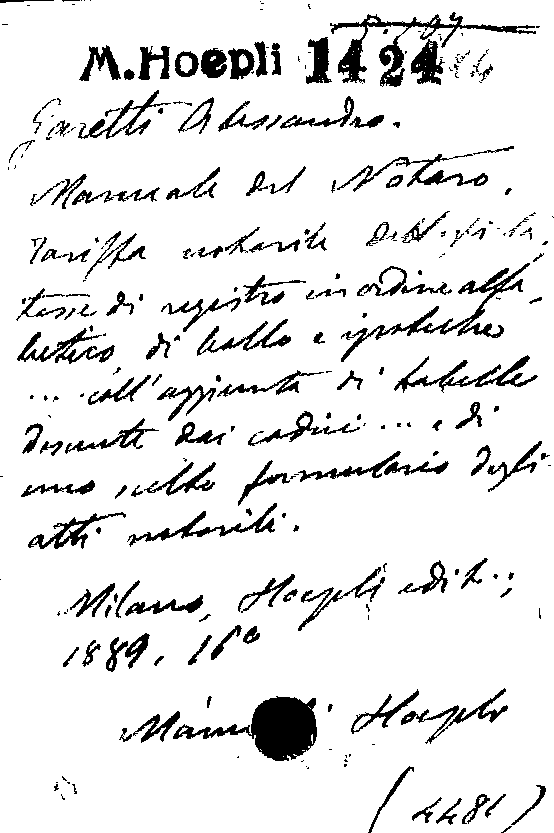 M. Hoepli 1424
Garetti Alessandro.
Manuale del Notaro.
Tariffa notarile
tasse di registro in ordine alfa-
betico, di bollo e ipoteche
... coll'aggiunta di tabelle
desunte dai codici ... e di
uno scelto formulario degli
atti notarili.
Milano, Hoepli edit.;
1889, 16°
Manuali Hoepli
(4481)